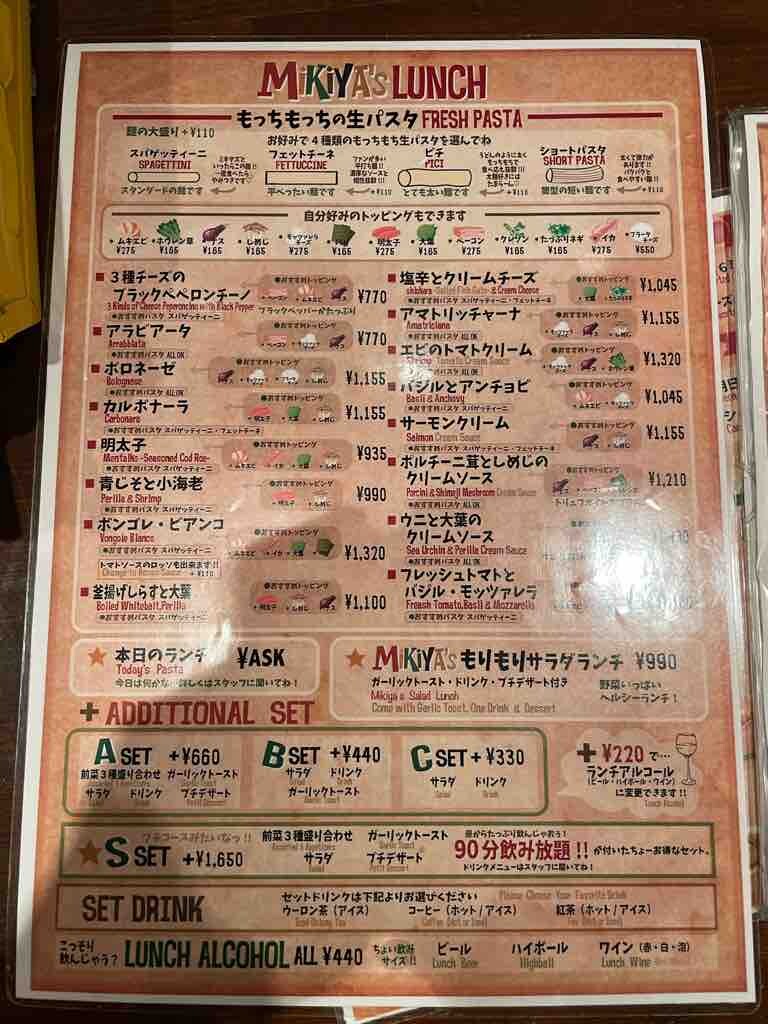 MiKiYA's LUNCH
もっちもっちの生パスタ FRESH PASTA
麺の大盛り +¥110
お好みで4種類のもっちもち生パスタを選んでね
スパゲッティーニ
SPAGETTINI
スタンダードの麺です
フェットチーネ
FETTUCCINE
平べったい麺です
←+¥110
ピチ
PICI
とても太い麺です
←+¥110
ショートパスタ
SHORT PASTA
筒型の短い麺です
←+¥110
自分好みのトッピングもできます
ムキエビ ¥275
ホウレン草 ¥165
ナス ¥165
しめじ ¥165
モッツァレラチーズ ¥275
¥165
明太子 ¥275
大葉 ¥165
ベーコン ¥275
クレソン ¥165
たっぷりネギ ¥165
イカ ¥275
ブラータチーズ ¥550
■ 3種チーズの
ブラックペペロンチーノ ¥770
3 Kinds of Cheese Peperoncino with Black Pepper
ブラックペッパーがたっぷり
●おすすめパスタ スパゲッティーニ
■ アラビアータ ¥770
Arrabbiata
●おすすめパスタ ALL OK
■ ボロネーゼ ¥1,155
Bolognese
●おすすめパスタ ALL OK
■ カルボナーラ ¥1,155
Carbonara
●おすすめパスタ スパゲッティーニ・フェットチーネ
■ 明太子 ¥935
Mentaiko -Seasoned Cod Roe-
●おすすめパスタ スパゲッティーニ
■ 青じそと小海老 ¥990
Perilla & Shrimp
●おすすめパスタ スパゲッティーニ
■ ボンゴレ・ビアンコ ¥1,320
Vongole Bianco
●おすすめパスタ スパゲッティーニ
トマトソースのロッソも出来ます!!
Change to Rosso Sauce +¥110
■ 釜揚げしらすと大葉 ¥1,100
Boiled Whitebait, Perilla
●おすすめパスタ スパゲッティーニ
■ 塩辛とクリームチーズ ¥1,045
Shiokara -Salted Fish Guts- & Cream Cheese
●おすすめパスタ スパゲッティーニ・フェットチーネ
■ アマトリッチャーナ ¥1,155
Amatriciana
●おすすめパスタ ALL OK
■ エビのトマトクリーム ¥1,320
Shrimp Tomato Cream Sauce
●おすすめパスタ ALL OK
■ バジルとアンチョビ ¥1,045
Basil & Anchovy
●おすすめパスタ スパゲッティーニ
■ サーモンクリーム ¥1,155
Salmon Cream Sauce
●おすすめパスタ スパゲッティーニ・フェットチーネ
■ ポルチーニ茸としめじの
クリームソース ¥1,210
Porcini & Shimeji Mushroom Cream Sauce
●おすすめパスタ ALL OK
■ ウニと大葉の
クリームソース
Sea Urchin & Perilla Cream Sauce
●おすすめパスタ ALL OK
■ フレッシュトマトと
バジル・モッツァレラ
Fresh Tomato, Basil & Mozzarella
●おすすめパスタ スパゲッティーニ
★ 本日のランチ ¥ASK
Today's Pasta
今日は何かな? 詳しくはスタッフに聞いてね!
★ MiKiYA's もりもりサラダランチ ¥990
ガーリックトースト・ドリンク・プチデザート付き
野菜いっぱい
ヘルシーランチ!
Mikiya's Salad Lunch
Come with Garlic Toast, One Drink & Dessert
+ ADDITIONAL SET
A SET +¥660
前菜3種盛り合わせ ガーリックトースト
サラダ ドリンク プチデザート
B SET +¥440
サラダ ドリンク
ガーリックトースト
C SET +¥330
サラダ ドリンク
+¥220 で…
ランチアルコール
(ビール・ハイボール・ワイン)
に変更できます!!
★S SET +¥1,650
プチコースみたいなっ!!
前菜3種盛り合わせ ガーリックトースト
サラダ プチデザート
昼からたっぷり飲んじゃおう!
90分飲み放題!! が付いたちょーお得なセット。
ドリンクメニューはスタッフに聞いてね!
SET DRINK
セットドリンクは下記よりお選びください Please Choose Your Favorite Drink
ウーロン茶(アイス) コーヒー(ホット/アイス) 紅茶(ホット/アイス)
Iced Oolong Tea Coffee (Hot or Iced) Tea (Hot or Iced)
こっそり飲んじゃう? LUNCH ALCOHOL ALL ¥440 ちょい飲みサイズ!!
ビール ハイボール ワイン(赤・白・泡)
Lunch Beer Highball Lunch Wine